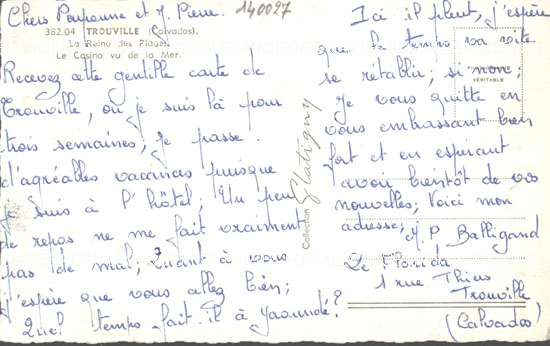 Chers Poupoune et J. Pierre.
140097
382.04 TROUVILLE (Calvados).
La Reine des Plages
Le Casino vu de la Mer.
Recevez cette gentille carte de
Trouville, où je suis là pour
trois semaines; Je passe
d'agréables vacances puisque
je suis à l'hôtel; Un peu
de repos ne me fait vraiment
pas de mal; Quant à vous
j'espère que vous allez bien;
Quel temps fait-il à Yaoundé?
Collection Flatigny
PHOTOGRAPHIE
VÉRITABLE
Ici il pleut, j'espère
que le temps va vite
se rétablir; si non;
Je vous quitte en
vous embrassant bien
fort et en espérant
avoir bientôt de vos
nouvelles; Voici mon
adresse; M. P Balligand
Le Florida
1 rue Thiers
Trouville
(Calvados)